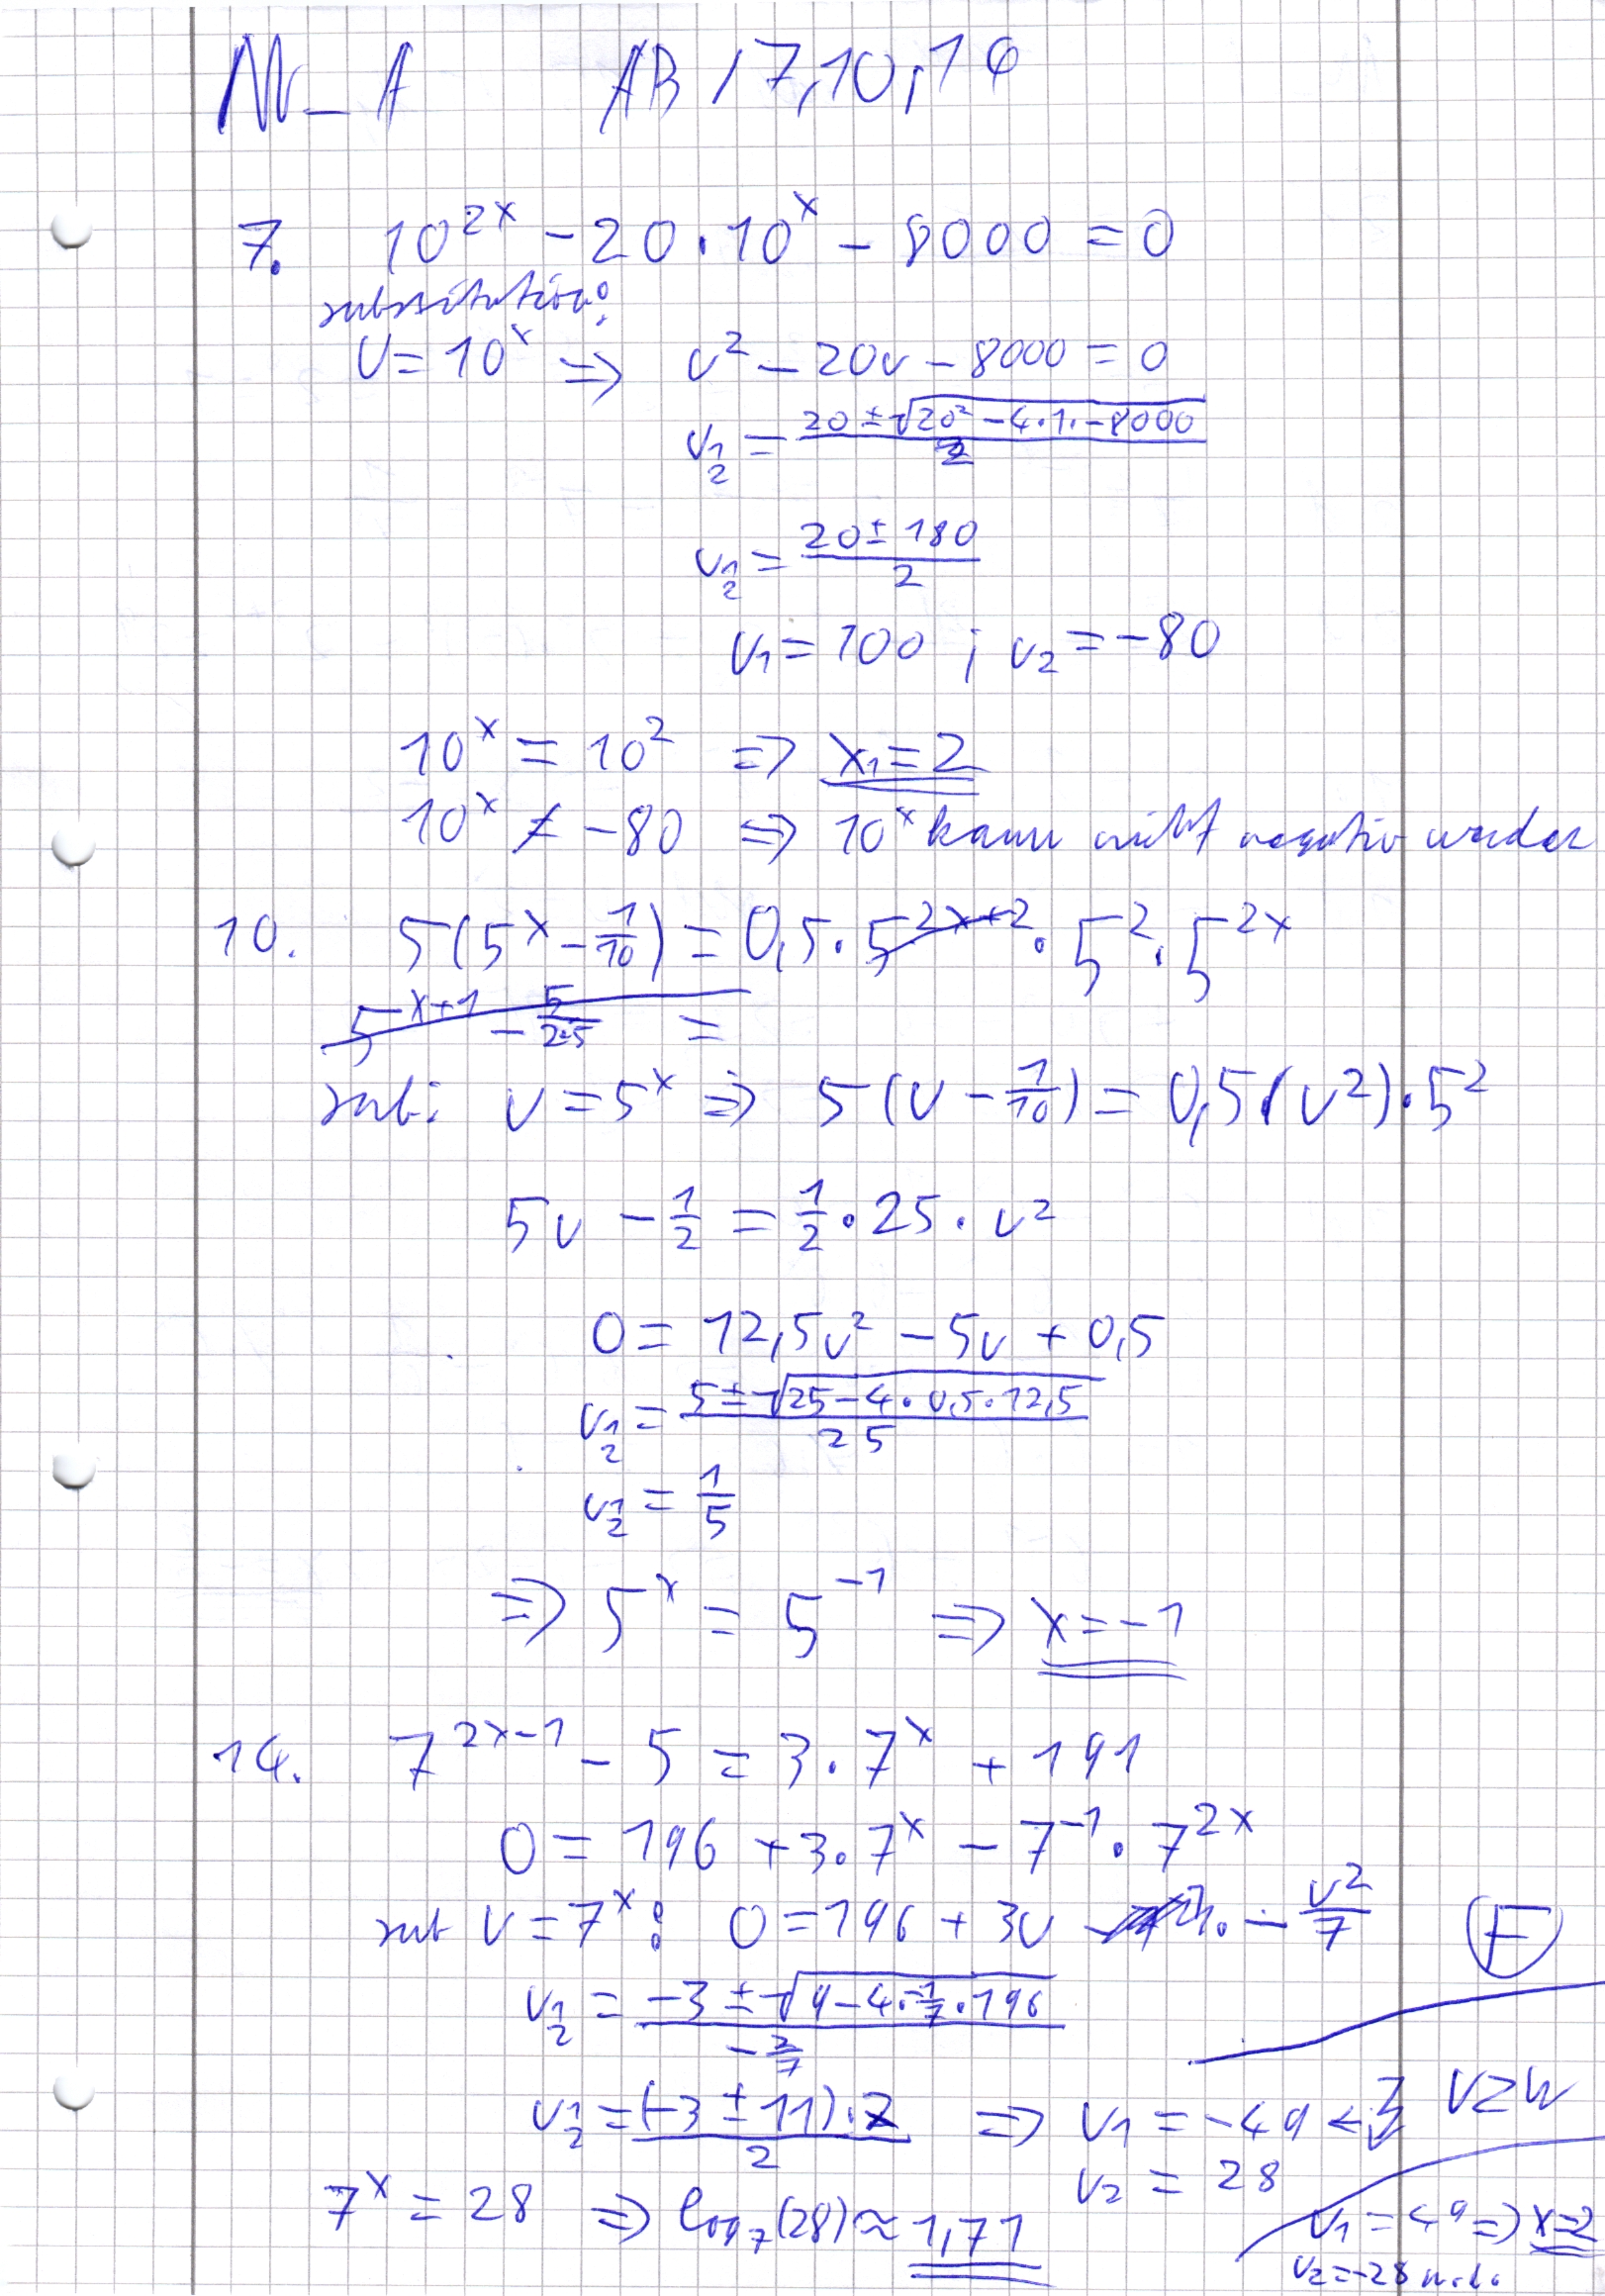 AB 7,10,14
7. 10^{2x} - 20 · 10^x - 8000 = 0
substitution:
U = 10^x ⇒ v² - 20v - 8000 = 0
v_{1/2} = \frac{20 ± √(20² - 4·1·-8000)}{2}
v_{1/2} = \frac{20 ± 180}{2}
v₁ = 100 ; v₂ = -80
10^x = 10² ⇒ x₁ = 2
10^x ≠ -80 ⇒ 10^x kann nicht negativ werden
10. 5(5^x - \frac{1}{10}) = 0,5 · 5^{2x+2} · 5² · 5^{2x}
5^{x+1} - \frac{5}{2·5} =
sub: v = 5^x ⇒ 5(v - \frac{1}{10}) = 0,5(v²) · 5²
5v - \frac{1}{2} = \frac{1}{2} · 25 · v²
0 = 12,5v² - 5v + 0,5
v_{1/2} = \frac{5 ± √(25 - 4 · 0,5 · 12,5)}{25}
v_{1/2} = \frac{1}{5}
⇒ 5^x = 5^{-1} ⇒ x = -1
14. 7^{2x-1} - 5 = 3 · 7^x + 191
0 = 196 + 3 · 7^x - 7^{-1} · 7^{2x}
sub v = 7^x : 0 = 196 + 3v - \frac{v²}{7}
F
v_{1/2} = \frac{-3 ± √(9 - 4 · -\frac{1}{7} · 196)}{-\frac{2}{7}}
v_{1/2} = \frac{(-3 ± 11) · 7}{2} ⇒ v₁ = -49
VZW
v₂ = 28
7^x = 28 ⇒ log₇(28) ≈ 1,71
v₁ = 49 ⇒ x = 2
v₂ = -28 n.l.